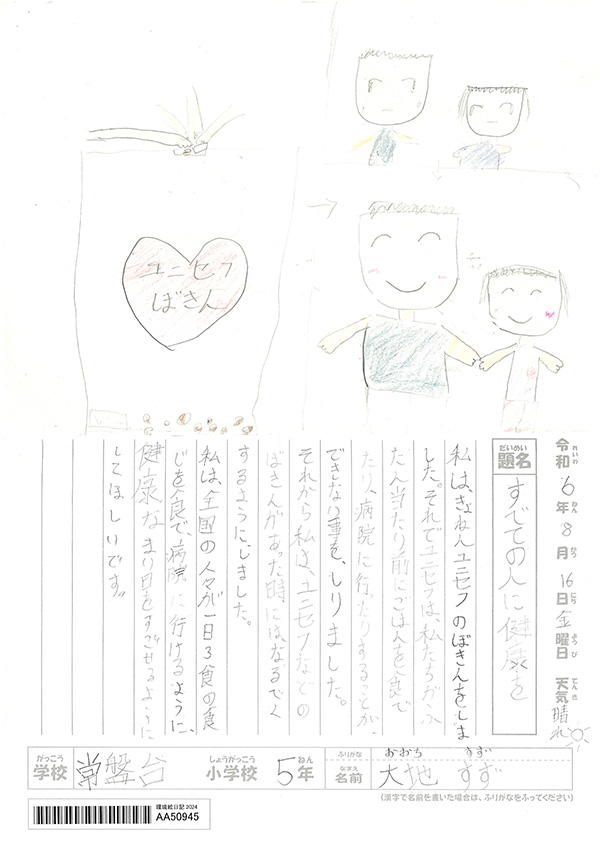 ユニセフ
ぼきん
令和6年8月16日金曜日 天気 晴れ
れいわ ねん がつ にち ようび てんき
だいめい
題名 すべての人に健康を
私は、きょねんユニセフのぼきんをしま
した。それでユニセフは、私たちがふ
だん当たり前にごはんを食べ
たり、病院に行ったりすることが、
できない事を、しりました。
それから私は、ユニセフなどの
ぼきんがあった時には、なるべく
するように、しました。
私は、全国の人々が一日3食の食
じを食べ、病院に行けるように、
健康なまい日をすごせるように
してほしいです。
がっこう しょうがっこう ねん ふりがな おおち すず
学校 常盤台 小学校 5年 なまえ 名前 大地 すず
(漢字で名前を書いた場合は、ふりがなをふってください)
環境絵日記2024
AA50945